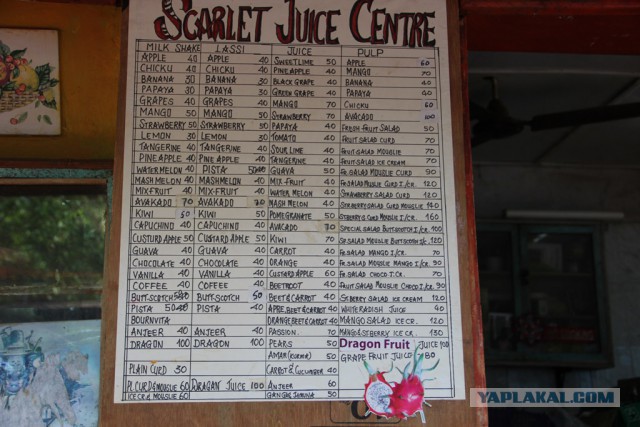 SCARLET JUICE CENTRE
MILK SHAKE LASSI JUICE PULP
APPLE 40 APPLE 40 SWEET LIME 50 APPLE 60
CHICKU 40 CHICKU 40 PINEAPPLE 40 MANGO 70
BANANA 30 BANANA 30 BLACK GRAPE 40 BANANA 40
PAPAYA 30 PAPAYA 30 GREEN GRAPE 40 PAPAYA 40
GRAPES 40 GRAPES 40 MANGO 70 CHICKU 60
MANGO 50 MANGO 50 STRAWBERRY 70 AVACADO 100
STRAWBERRY 50 STRAWBERRY 50 PAPAYA 40 FRESH FRUIT SALAD 50
LEMON 30 LEMON 30 TOMATO 40 FRUIT SALAD CURD 70
TANGERINE 40 TANGERINE 40 SOUR LIME 40 FRUIT SALAD MOUSLIE 70
PINEAPPLE 40 PINE APPLE 40 TANGERINE 40 FRUIT SALAD ICE CREAM 70
WATER MELON 40 PISTA GUAVA 50 FR. SALAD MOUSLIE 90
MASH MELON 40 MASHMELON 40 MIX-FRUIT 40 FR. SALAD MUSLIE CURD I/CR. 120
MIX-FRUIT 40 MIX-FRUIT 40 WATER MELON 40 STRABERRY SALAD CURD 120
AVAKADO 70 AVAKADO 70 MASH MELON 40 STRBERRY SALAD CURD MOUSLIE 140
KIWI 50 KIWI 50 POMEGRANATE 50 STBERRY & CURD MOUSLIE I/CR. 160
CAPUCHINO 40 CAPUCHINO 40 AVACADO 70 SPECIAL SALAD BUTTSCOTCH I/CR. 100
CUSTURD APPLE 50 CUSTARD APPLE 50 KIWI 70 SP. SALAD MOUSLIE BUTTSCOTCH I/CR. 120
GUAVA 40 GUAVA 40 CARROT 40 FR. SALAD MANGO I/CR. 70
CHOCOLATE 40 CHOCOLATE 40 ORANGE 40 FR. SALAD MOUSLIE MANGO I/CR. 90
VANILLA 40 VANILLA 40 CUSTARD APPLE 60 FR. SALAD CHOCO I CR. 70
COFFEE 40 COFFEE 40 BEETROOT 40 FRUIT SALAD MOUSLIE CHOCO I/CR. 90
BUTT-SCOTCH BUTT-SCOTCH 50 BEET & CARROT 40 ST.BERRY SALAD ICE CREAM 120
PISTA PISTA 40 APPLE, BEET & CARROT 40 WHITE RADISH JUICE 40
BOURNVITA ORANGE BEET & CARROT 40 MANGO SALAD ICE CR. 120
ANJEER 40 ANJEER 40 PASSION. 70 MANGO & STBERRY ICE CR. 130
DRAGON 100 DRAGON 100 PEARS 50 Dragon Fruit JUICE 100
AMAR 50 GRAPE FRUIT JUICE 80
PLAIN CURD 30 CARROT & CUCUMBER 40
PL. CURD & MOUSLIE 60 DRAGAN JUICE 100 ANJEER 60
ICE CR & MOUSLIE 60 50
YAPLAKAL.COM